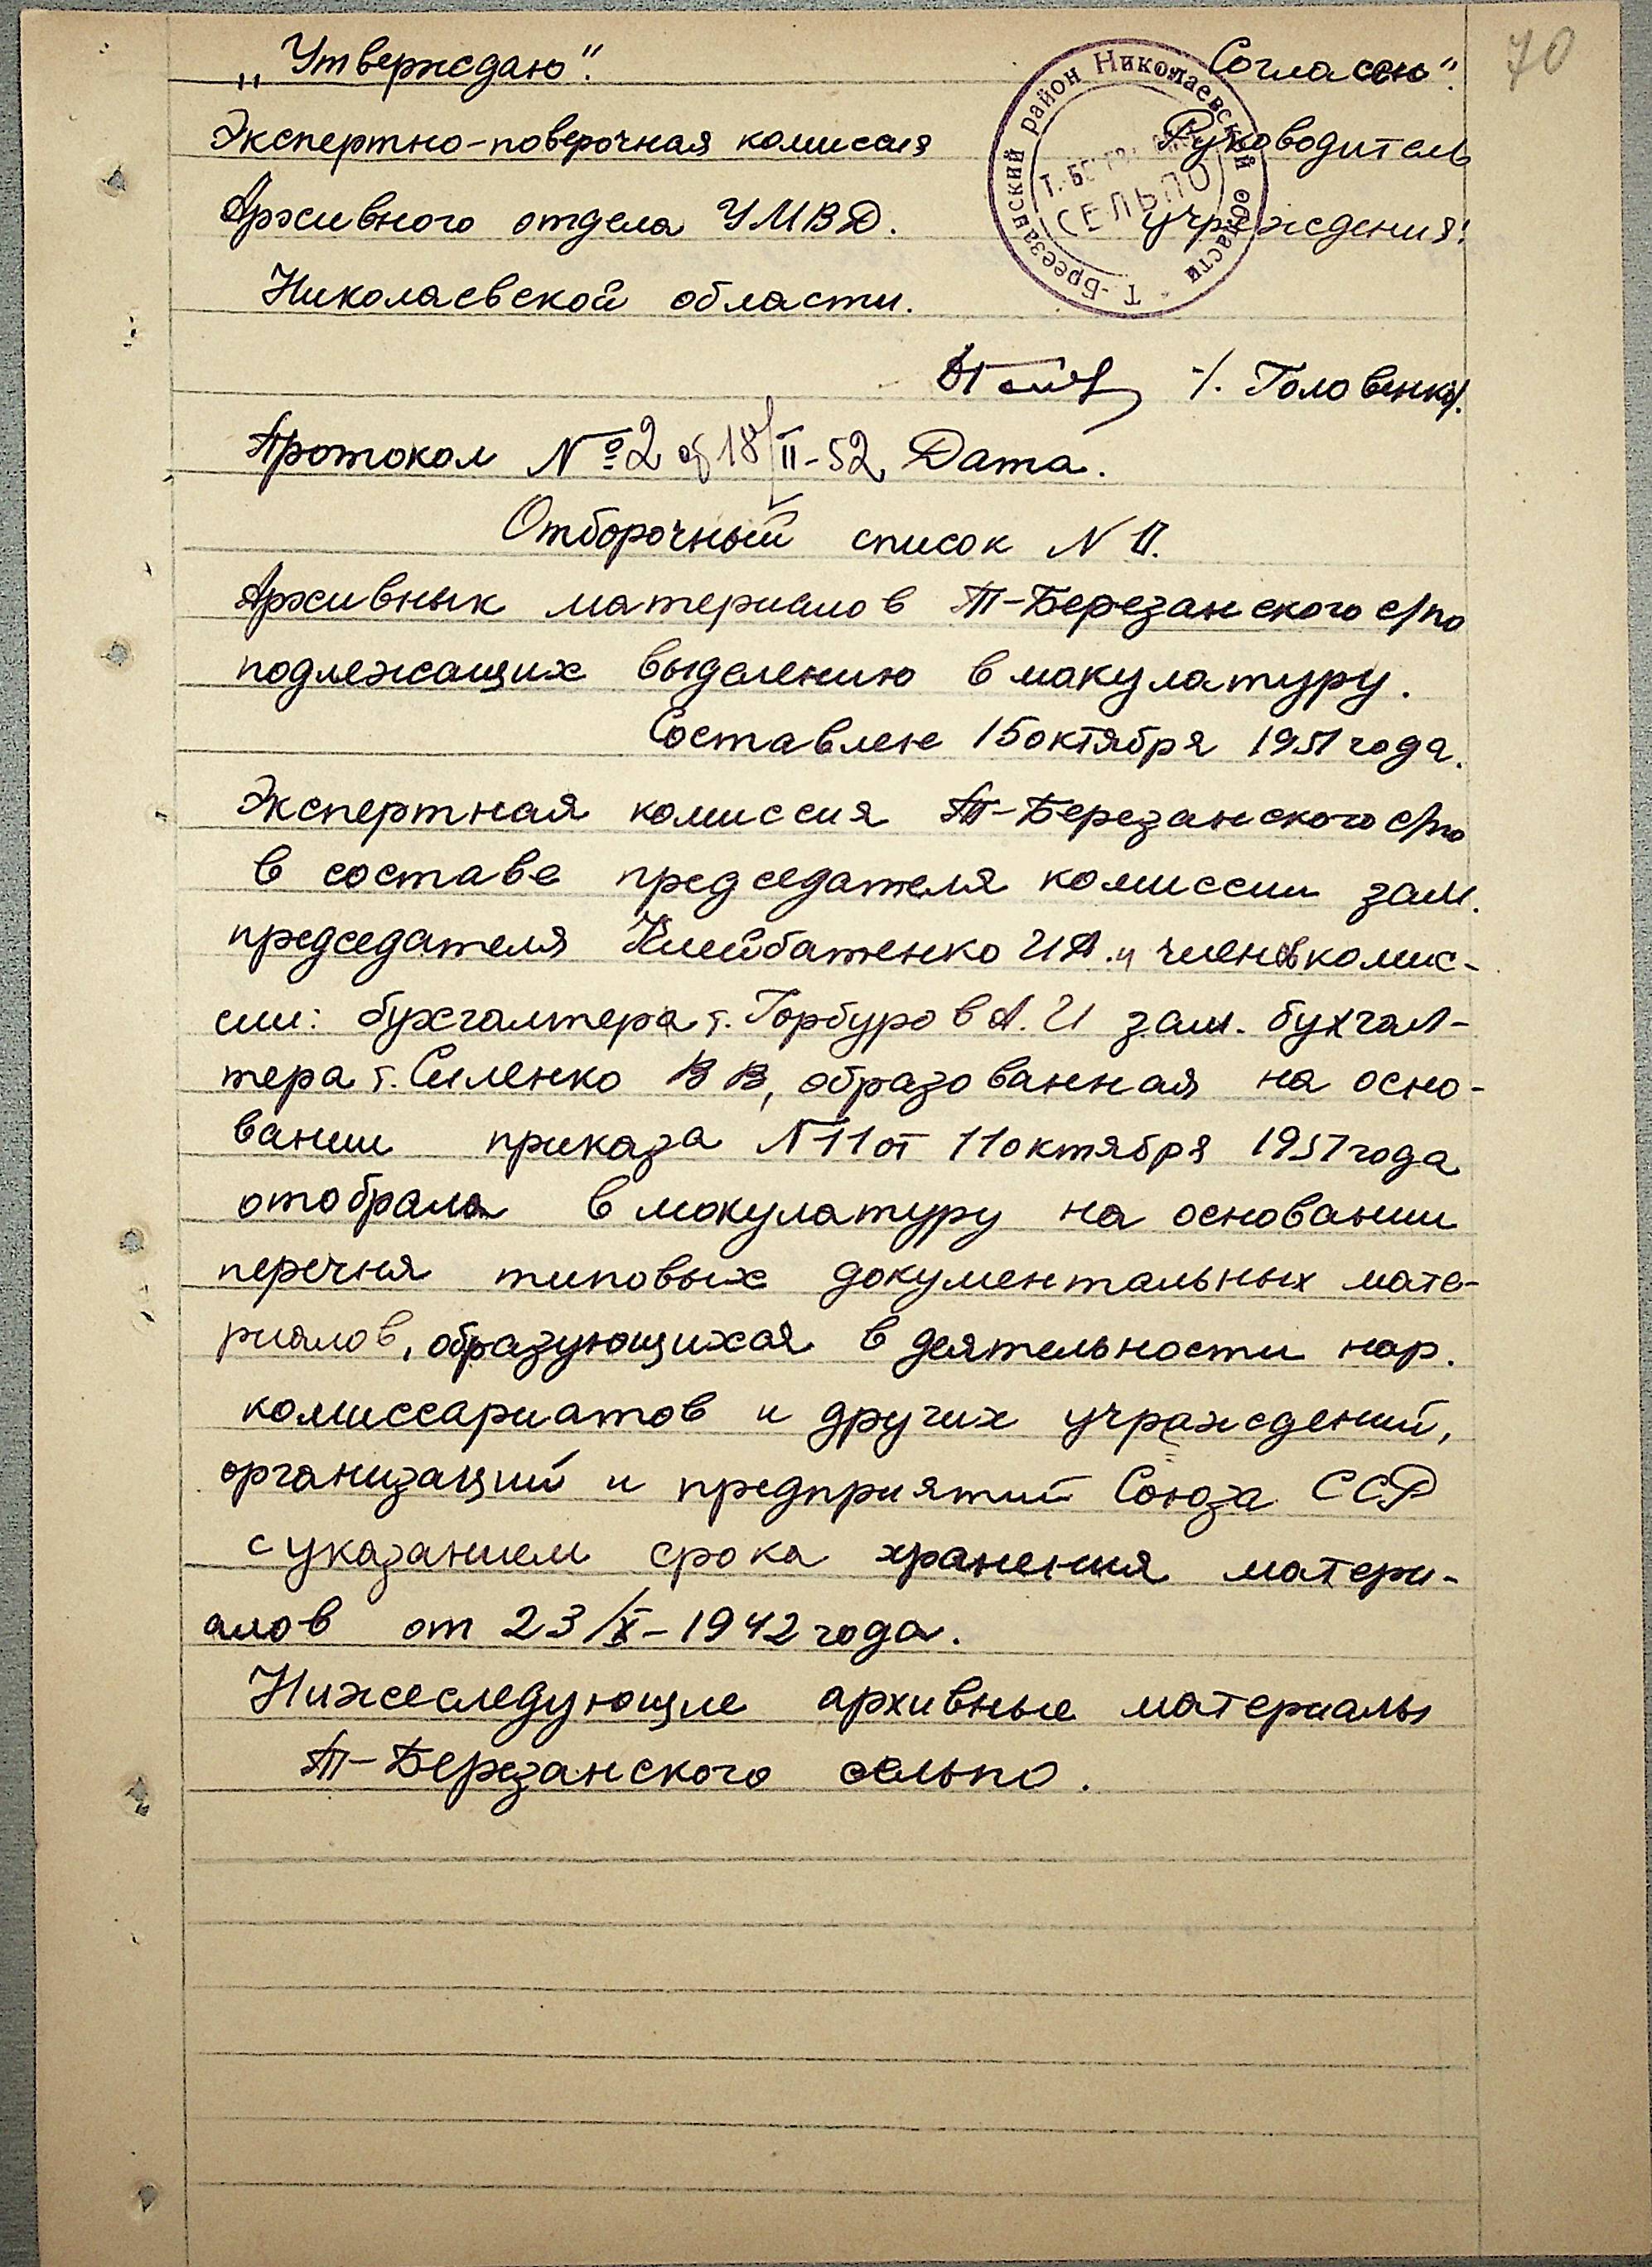 70
„Утверждаю". Согласен".
Экспертно-поверочная комиссия Руководитель
Архивного отдела УМВД. учреждения:
Николаевской области.
Т.-Бреезанский район Николаевской области
СЕЛЬПО
/. Головенко/.
Протокол №2 от 18/II-52 Дата.
Отборочный список N II.
Архивных материалов Т-Березанского с/по
подлежащих выделению в макулатуру.
Составлен 15 октября 1951 года.
Экспертная комиссия Т-Березанского с/по
в составе председателя комиссии зам.
председателя И.А. и членов комис-
сии: бухгалтера т. Горбуров А. И зам. бухгал-
тера т. Силенко В В, образованная на осно-
вании приказа N 11 от 11 октября 1951 года
отобрала в мокулатуру на основании
перечня типовых документальных мате-
риалов, образующихся в деятельности нар.
комиссариатов и других учраждений,
организаций и предприятий Союза ССР
с указанием срока хранения матери-
алов от 23/X-1942 года.
Нижеследующие архивные материалы
Т-Березанского сельпо.